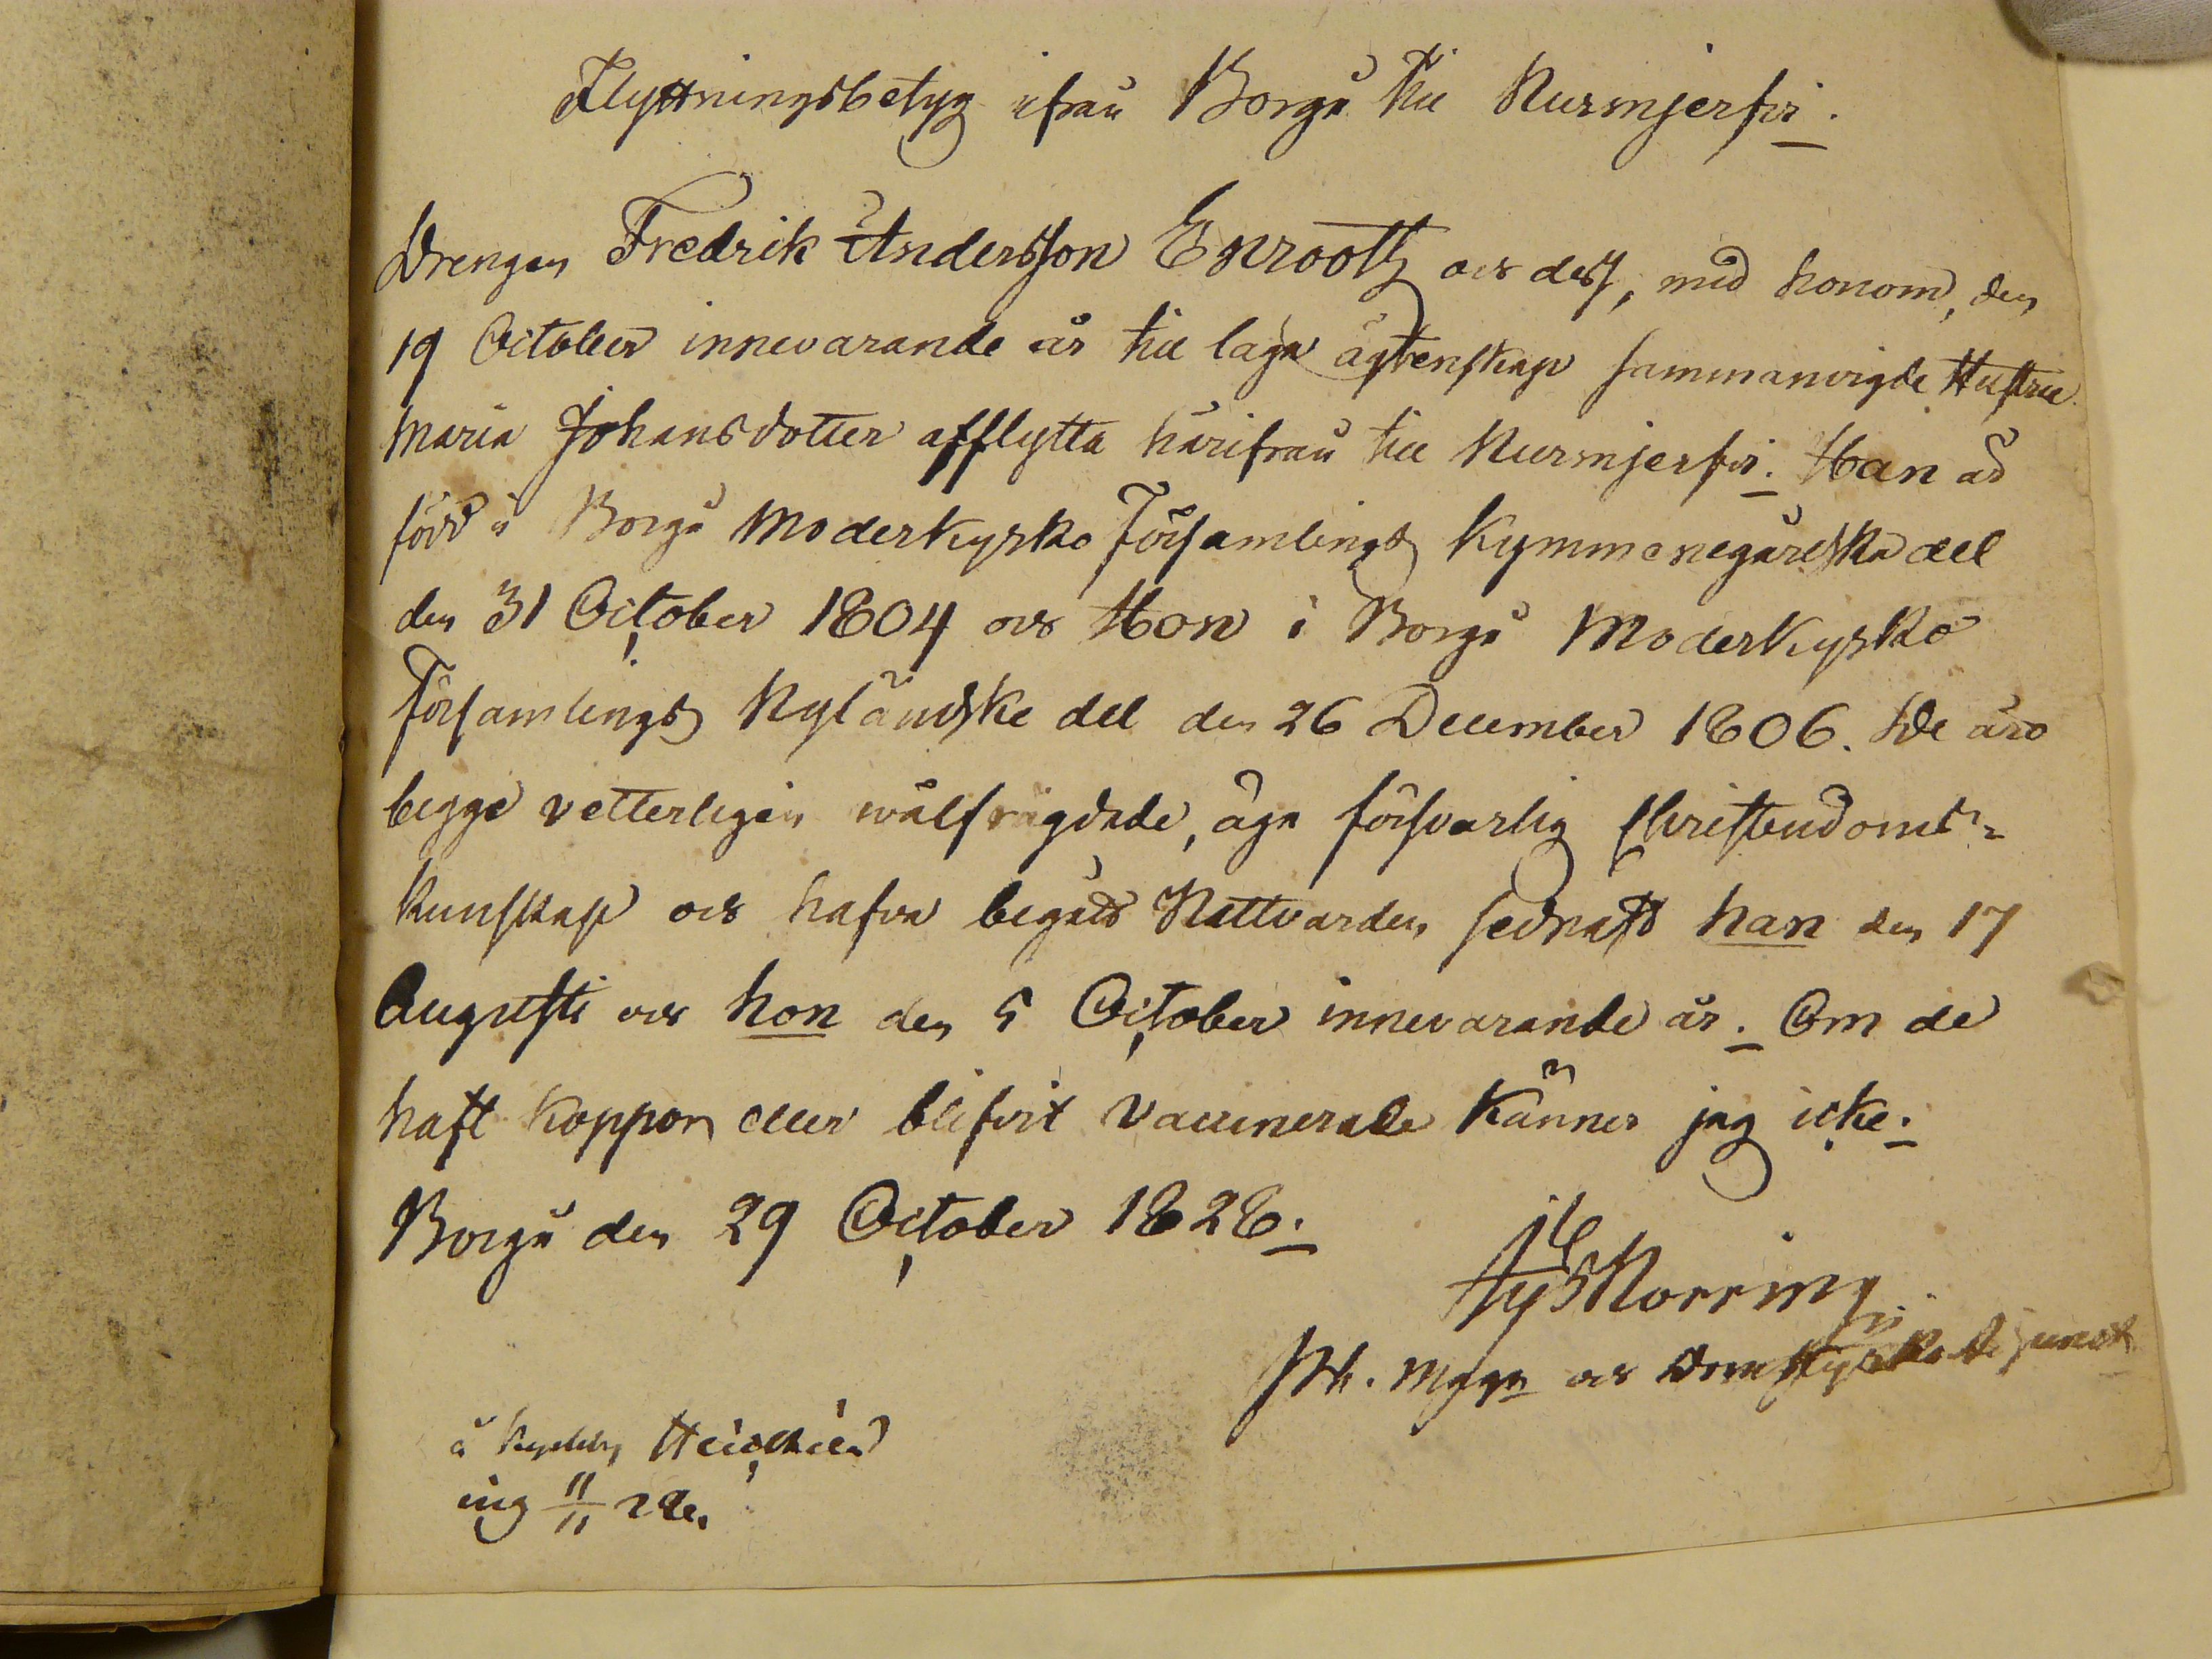 Flyttningsbetyg ifrån Borgå till Nurmjerfvi.
Drengen Fredrik Andersson Enrooth och dess, med honom, den
19 October innevarande år till laga ägtenskap sammanvigde Hustru
Maria Johansdotter afflytta härifrån till Nurmjerfvi. Han är
född i Borgå Moderkyrko Församlings Kymmenegårdska del
den 31 October 1804 och Hon i Borgå Moderkyrko
Församlings Nyländske del den 26 December 1806. De äro
begge vetterligen wälfrägdade, äga försvarlig Christendoms=
kunskap och hafva begått Nattvarden sednast han den 17
Augusti och hon den 5 October innevarande år. Om de
haft koppor eller blifvit vaccinerade känner jag icke.
Borgå den 29 October 1828.
Norring
och Domkyrko Adjunct
å
ing 11/11 28.